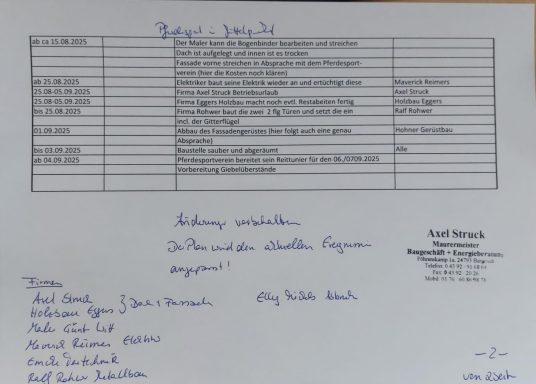 ab ca 15.08.2025 Der Maler kann die Bogenbinder bearbeiten und streichen
Dach ist aufgelegt und innen ist es trocken
Fassade vorne streichen in Absprache mit dem Pferdesport-
verein (hier die Kosten noch klären)
ab 25.08.2025 Elektriker baut seine Elektrik wieder an und ertüchtigt diese Maverick Reimers
25.08-05.09.2025 Firma Axel Struck Betriebsurlaub Axel Struck
25.08-05.09.2025 Firma Eggers Holzbau macht noch evtl. Restabeiten fertig Holzbau Eggers
bis 25.08.2025 Firma Rohwer baut die zwei 2 flg Türen und setzt die ein Ralf Rohwer
incl. der Gitterflügel
01.09.2025 Abbau des Fassadengerüstes (hier folgt auch eine genau Hohner Gerüstbau
Absprache)
bis 03.09.2025 Baustelle sauber und abgeräumt Alle
ab 04.09.2025 Pferdesportverein bereitet sein Reittunier für den 06./0709.2025
Vorbereitung Giebelüberstände
Änderungen vorbehalten
Der Plan wird den aktuellen Ereignissen
angepasst!
Axel Struck
Maurermeister
Baugeschäft + Energieberatung
Firmen
Axel Struck
Holzbau Eggers } Dach + Fassade
Maler Günt Witt
Maverick Reimers Elektro
Ralf Rohwer Metallbau
-2-
von 2 Seiten